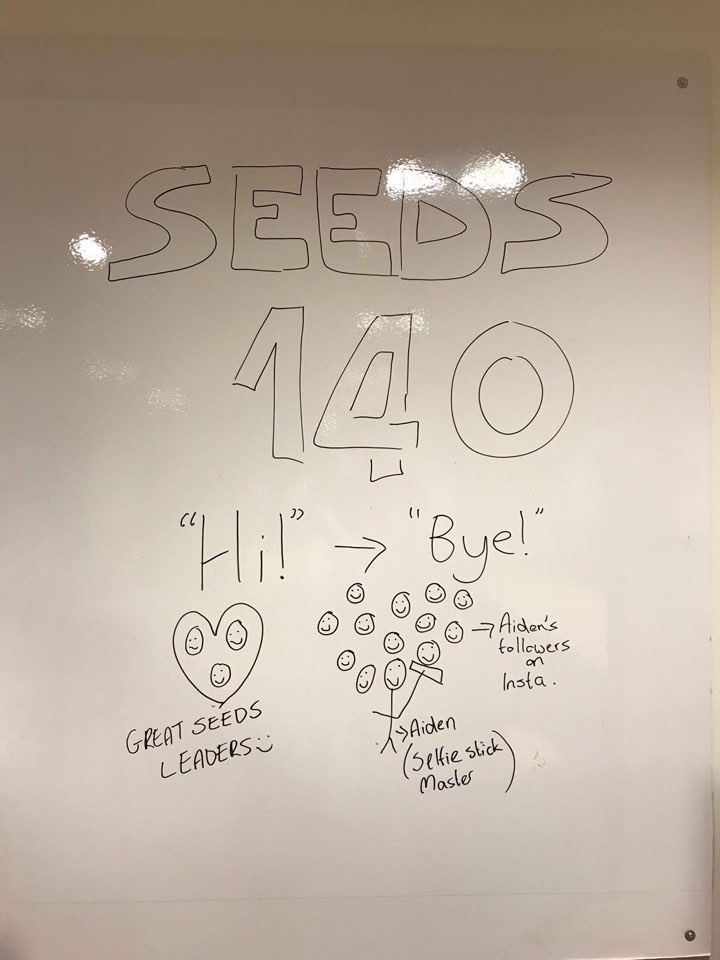 SEEDS
140
"Hi!" → "Bye!"
→ Aiden's
followers
on
Insta.
GREAT SEEDS
LEADERS
→ Aiden
(Selfie stick
Master)